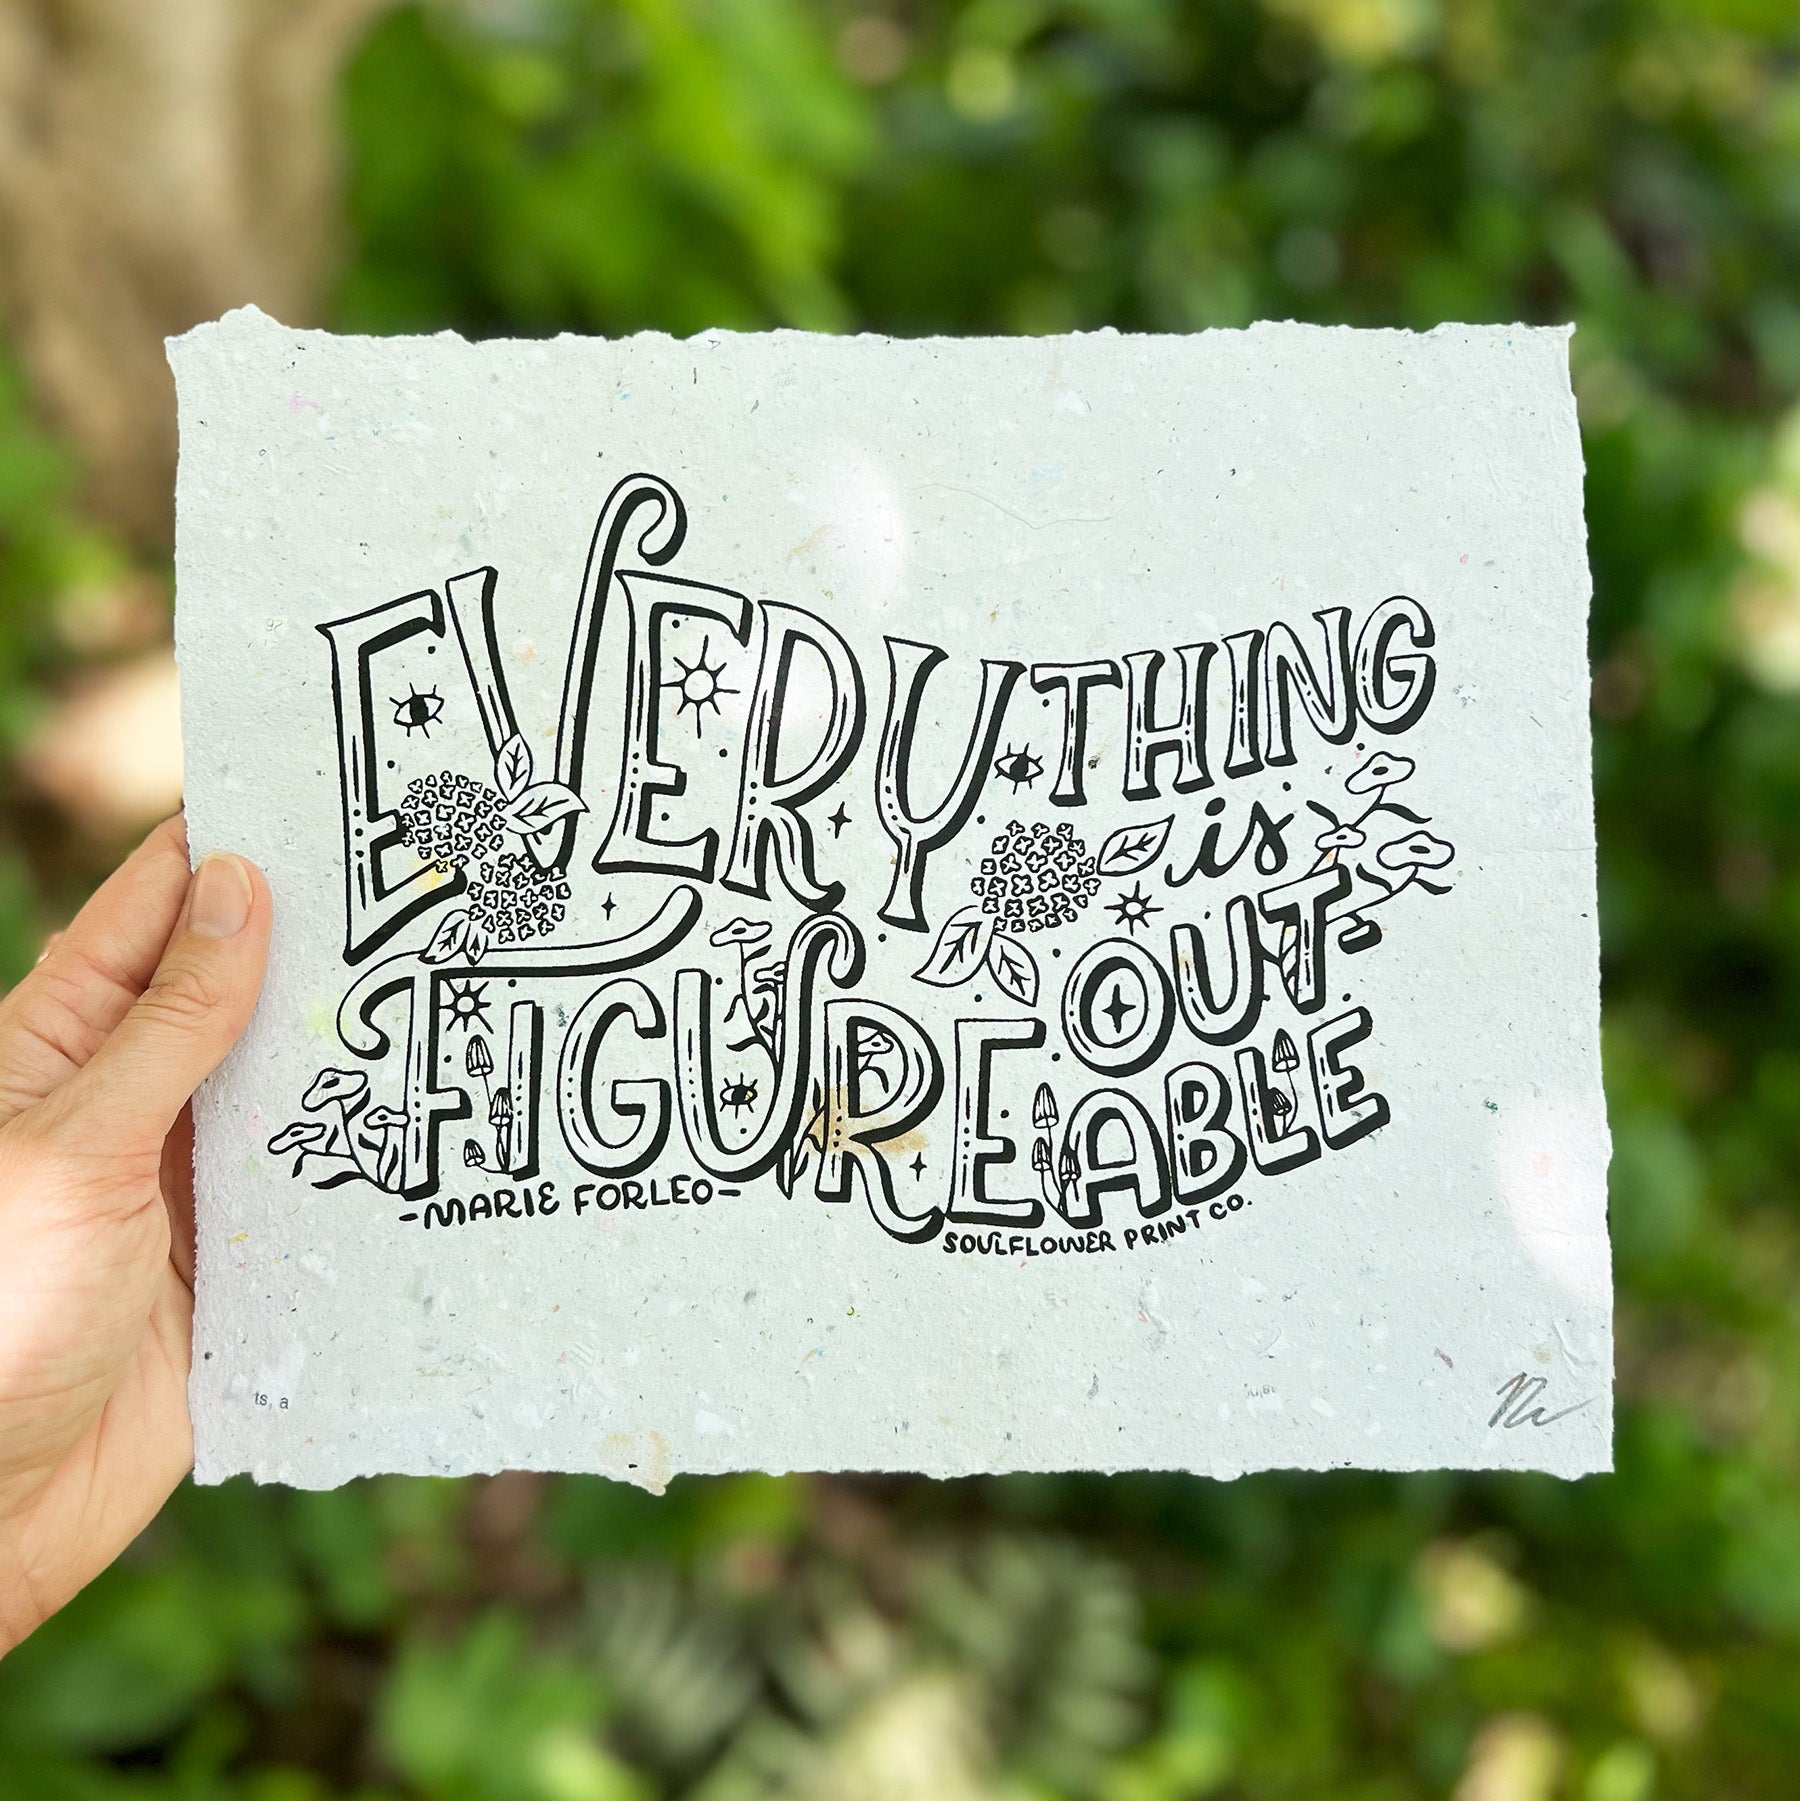 EVERYTHING
is
FIGUREOUT-
ABLE
-MARIE FORLEO-
SOULFLOWER PRINT CO.
ts, a